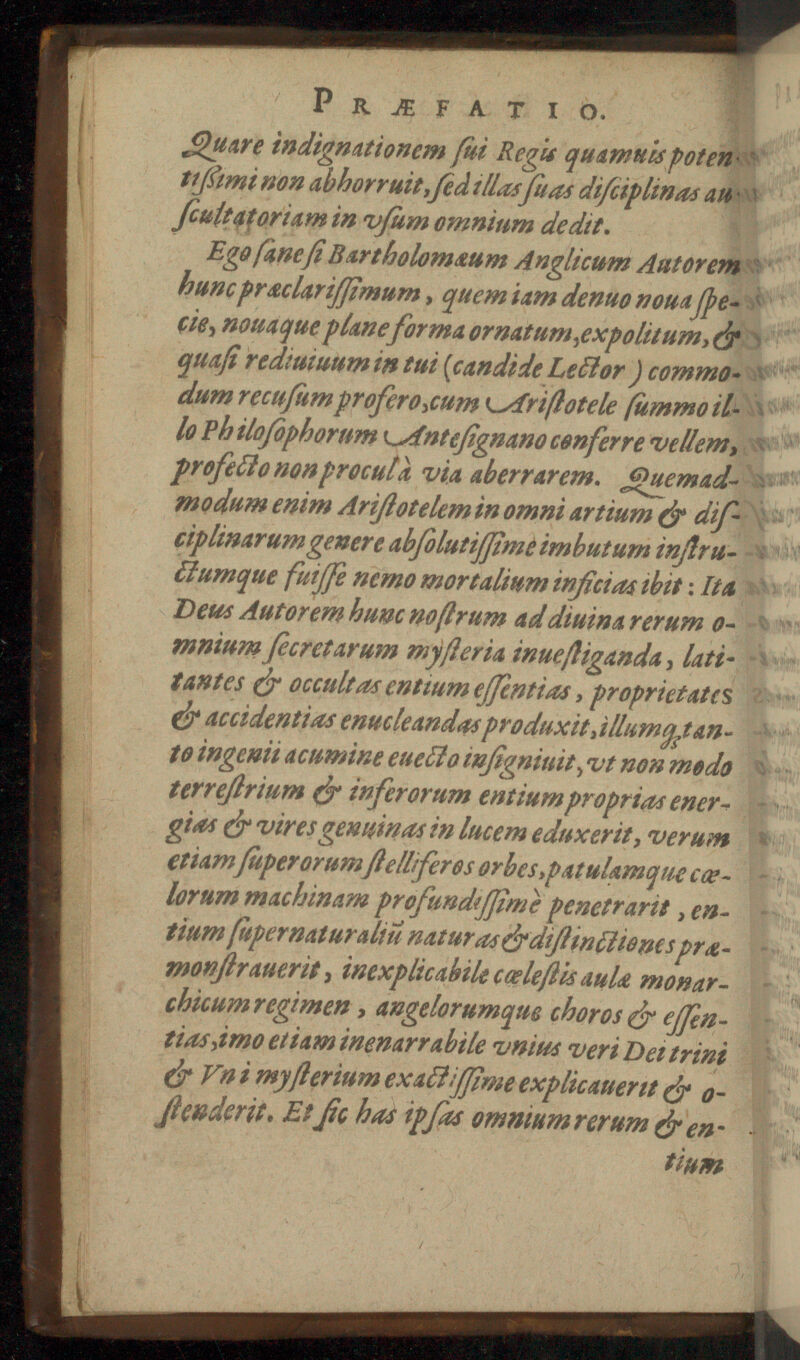 PRÆFATIO.
Quare indignationem ſui Regis quamuis poten-
tiſſimi non abhorruit, ſed illas ſuas diſciplinas au-
ſcultatoriam in vſum omnium dedit.
Ego ſane ſi Bartholomæum Anglicum Autorem
hunc præclariſſimum, quem iam denuo noua ſpe-
cie, nouaque plane forma ornatum, expolitum, &
quaſi rediuiuum in tui (candide Lector) commo-
dum recuſum profero, cum Ariſtotele ſummo il-
lo Philoſophorum Anteſignano conferre vellem,
profecto non procul à via aberrarem. Quemad-
modum enim Ariſtotelem in omni artium & diſ-
ciplinarum genere abſolutiſſimè imbutum inſtru-
ctumque fuiſſe nemo mortalium inficias ibit: Ita
Deus Autorem hunc noſtrum ad diuina rerum o-
mnium ſecretarum myſteria inueſtiganda, lati-
tantes & occultas entium eſſentias, proprietates
& accidentias enucleandas produxit, illumq; tan-
to ingenii acumine euecto inſigniuit, vt non modo
terreſtrium & inferorum entium proprias ener-
gias & vires genuinas in lucem eduxerit, verum
etiam ſuperorum ſtelliferos orbes, patulamque cœ-
lorum machinam profundiſſimè penetrarit, en-
tium ſupernaturaliũ naturas & diſtinctiones præ-
monſtrauerit, inexplicabile cœleſtis aulæ monar-
chicum regimen, angelorumque choros & eſſen-
tias, imo etiam inenarrabile vnius veri Dei trini
& Vni myſterium exactiſſime explicauerit & o-
ſtenderit. Et ſic has ipſas omnium rerum & en-
tium